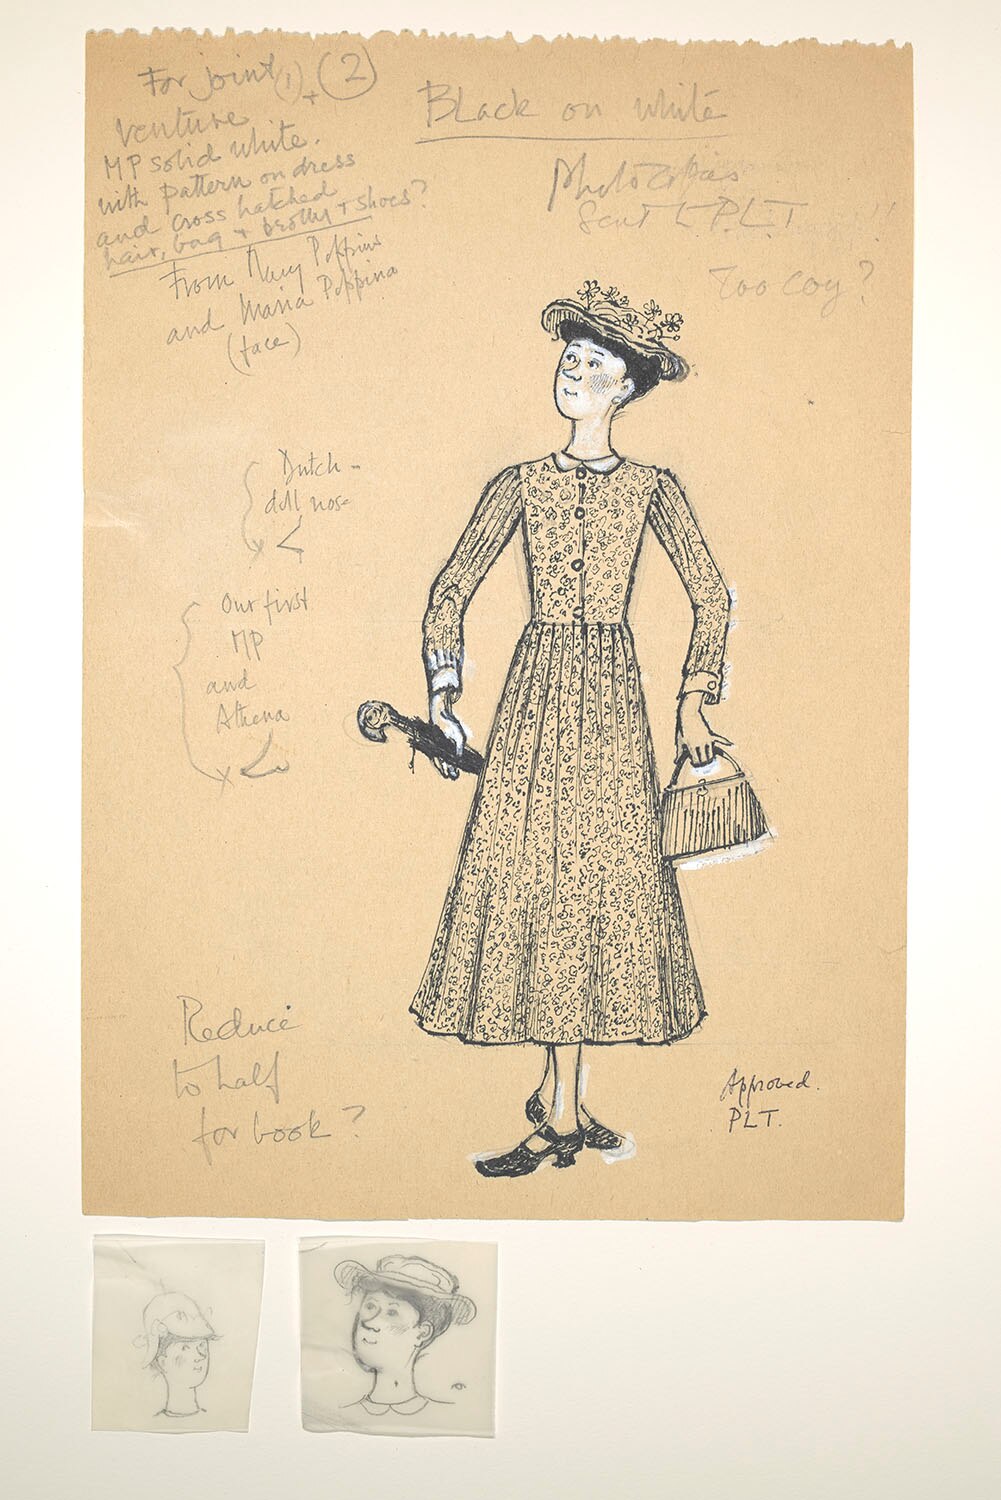 For joint (1) + (2)
venture
MP solid white.
with pattern on dress
and cross hatched
hair, bag + brolly + shoes?
From Mary Poppins
and Maria Poppina
(face)
Black on white
Photocopies
Sent to P.L.T
!!
Too coy?
Dutch -
doll nose
x <
Our first
MP
and
Athena
x
Reduce
to half
for book?
Approved.
PLT.